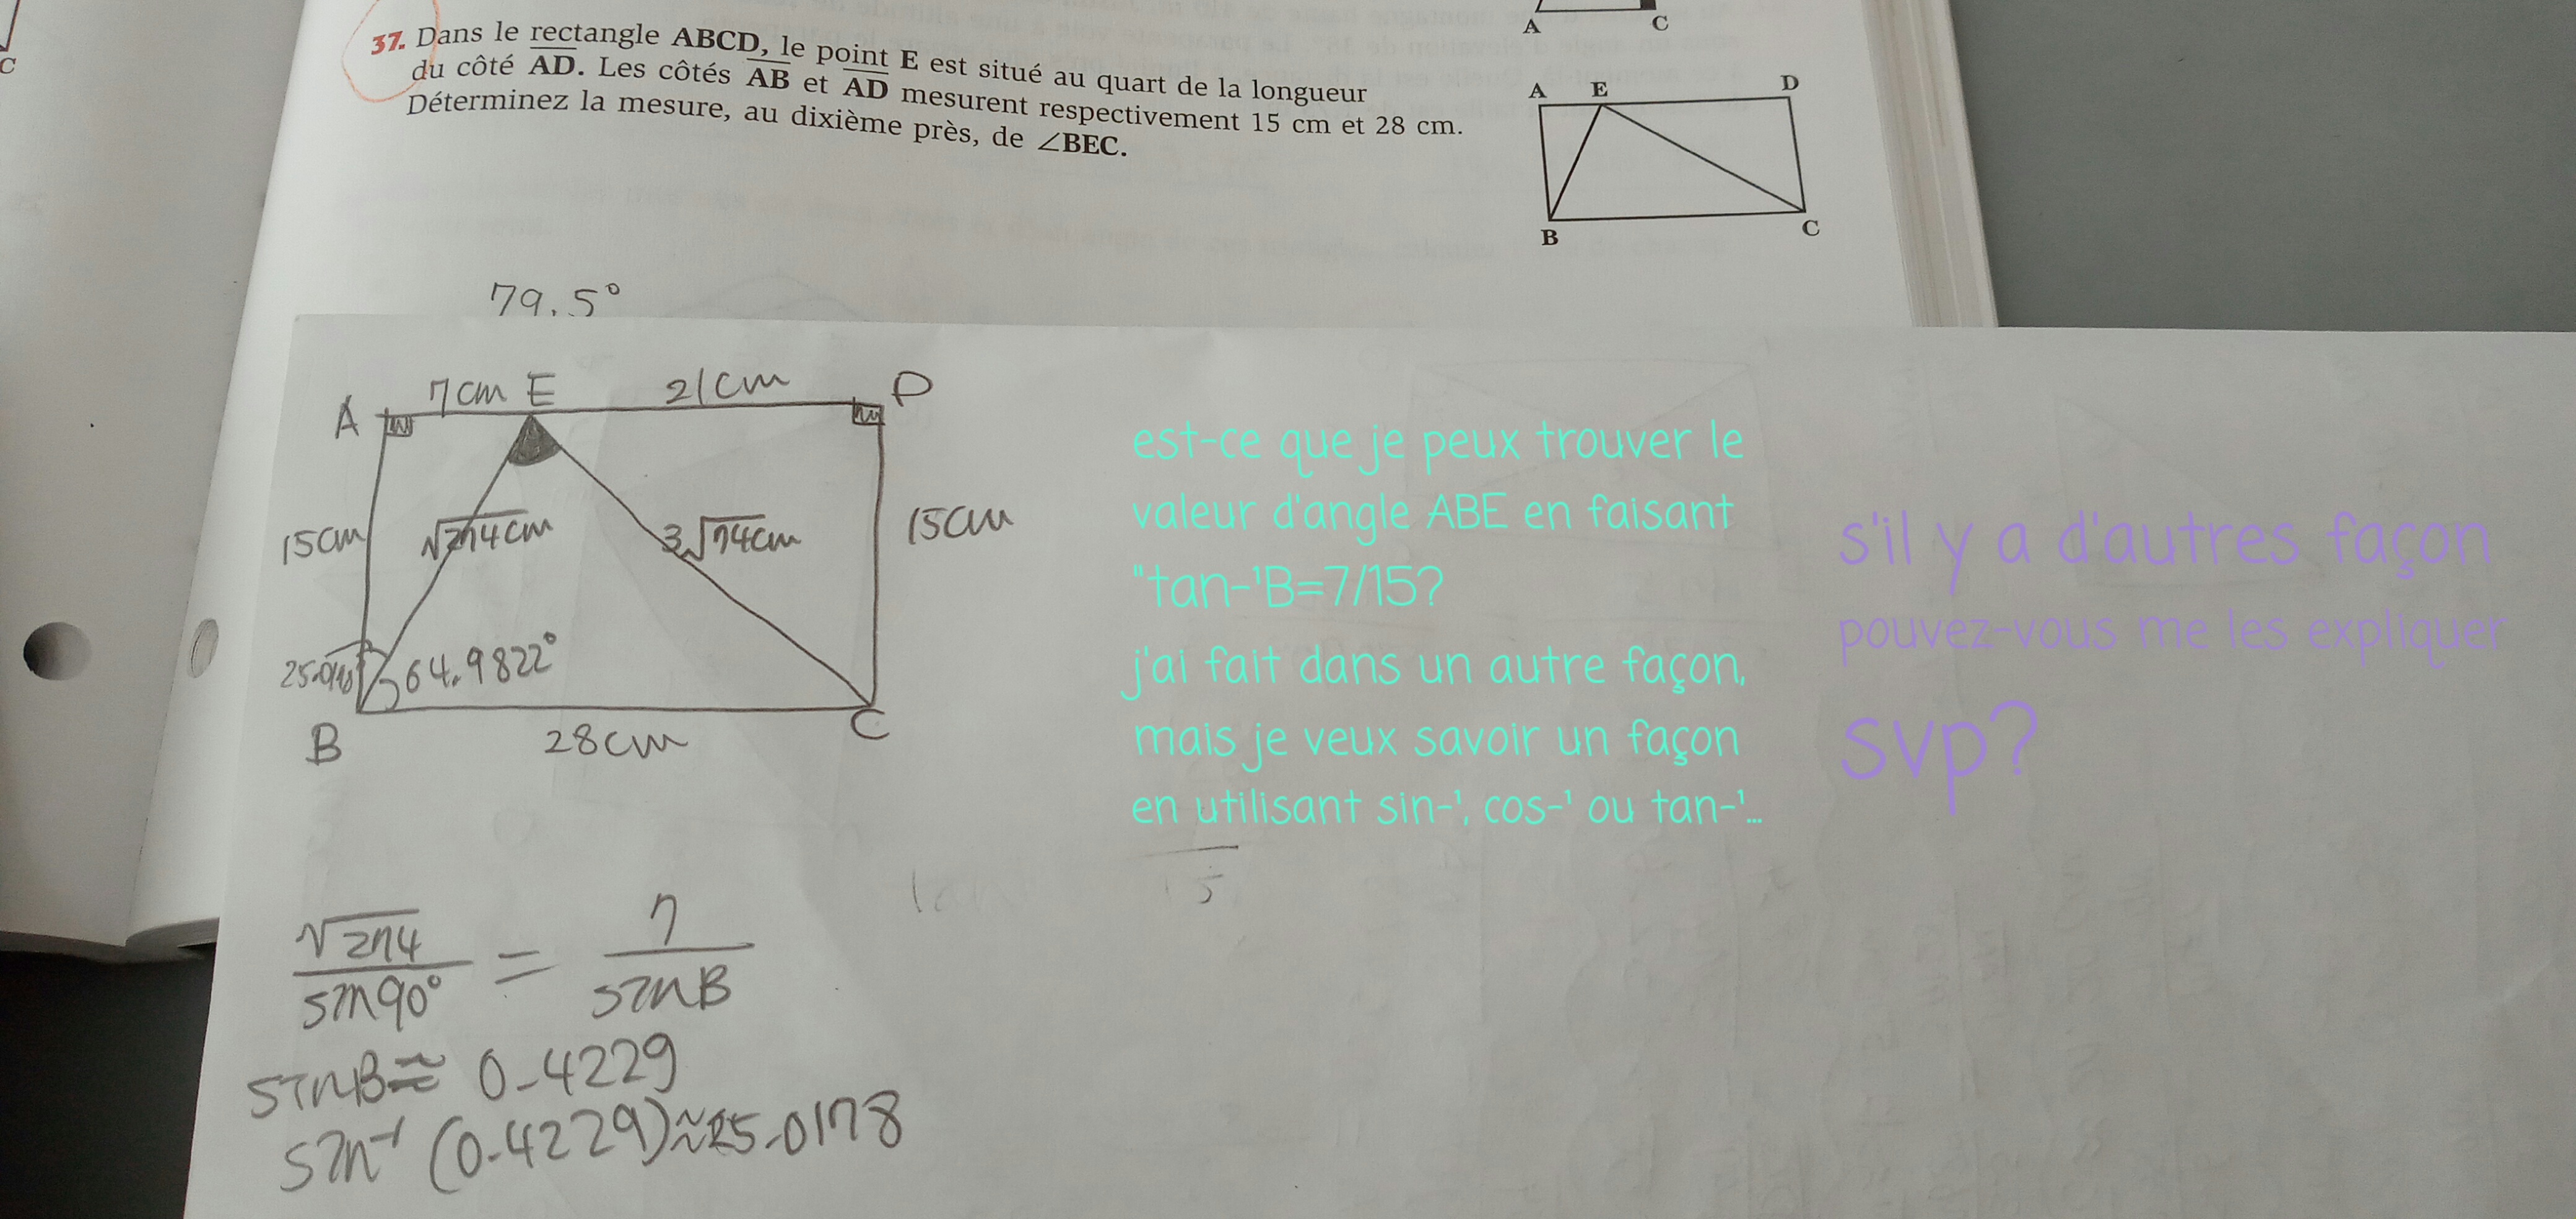 C
A
C
37. Dans le rectangle ABCD, le point E est situé au quart de la longueur
du côté AD. Les côtés AB et AD mesurent respectivement 15 cm et 28 cm.
Déterminez la mesure, au dixième près, de ∠BEC.
A E D
B C
79.5°
A 7cm E 21cm D
15cm √274cm 3√74cm 15cm
64.9822°
B 28cm C
est-ce que je peux trouver le
valeur d'angle ABE en faisant
"tan-¹B=7/15?
j'ai fait dans un autre façon,
mais je veux savoir un façon
en utilisant sin-¹, cos-¹ ou tan-¹...
s'il y a d'autres façon
pouvez-vous me les expliquer
svp?
√274/sin90° = 7/sinB
sinB≈ 0.4229
sin⁻¹ (0.4229)≈25.0178